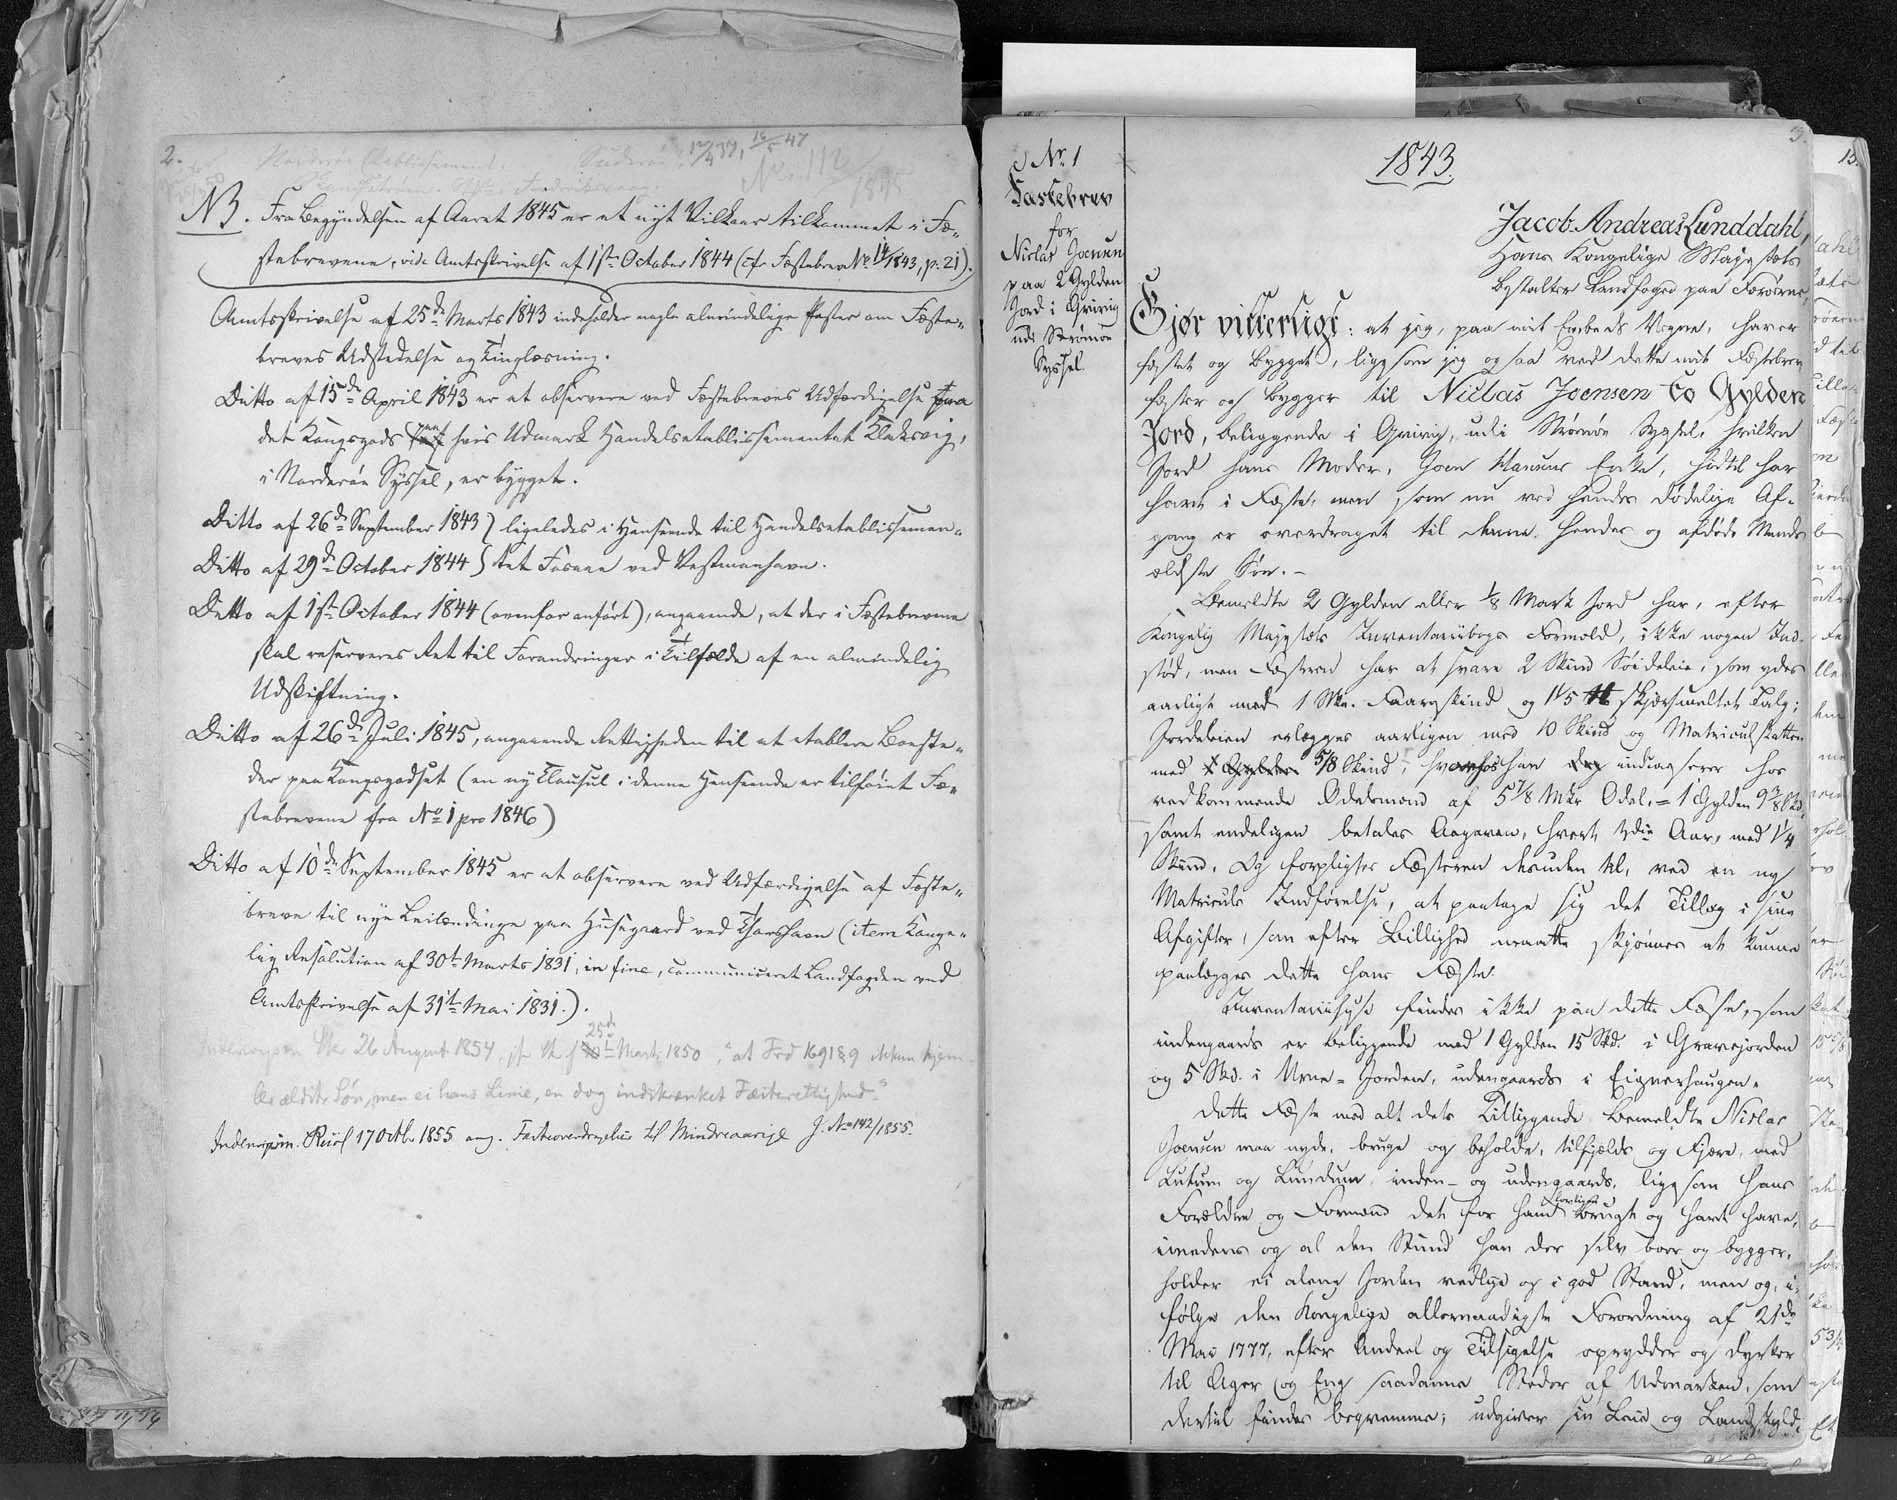 2.
Norderøe Etablissement. Suderøe 12/4 37, 16/5 47
No 112/1845
NB. Fra Begyndelsen af Aaret 1845 er et nyt Vilkaar tilkommet i Fæ-
stebrevene, vide Amtsskrivelse af 1ste October 1844 (cfr Fæstebrev No 14/1843, p. 21).
Amtsskrivelse af 25de Marts 1843 indeholder nogle almindelige Poster om Fæste-
breves Udstedelse og Tinglæsning.
Ditto af 15de April 1843 er at observere ved Fæstebrevers Udfærdigelse paa
det Kongsgods paa hvis Udmark Handelsetablissementet Klaksvig,
i Norderøe Syssel, er bygget.
Ditto af 26de September 1843 } ligeledes i Henseende til Handelsetablissemen-
Ditto af 29de October 1844 } tet Fosaae ved Vestmanhavn.
Ditto af 1ste October 1844 (ovenfor anført), angaaende, at der i Fæstebrevene
skal reserveres Ret til Forandringer i Tilfælde af en almindelig
Udskiftning.
Ditto af 26de Juli 1845, angaaende Rettigheden til at etablere Boeste-
der paa Kongsgodset (en ny Clausul i denne Henseende er tilføiet Fæ-
stebrevene fra No 1 pro 1846)
Ditto af 10de September 1845 er at observere ved Udfærdigelse af Fæste-
breve til nye Leilændinge paa Husegaard ved Thorshavn (item Konge-
lig Resolution af 30te Marts 1831, in fine, communiceret Landfogden ved
Amtsskrivelse af 31te Mai 1831.).
25de
Skr 26 August 1854, Marts 1850, "at Frd 1691 § 9 hjem-
ler ældste Søn, men ei hans Linie, en dog indskrænket Fæsterettighed"
Indenrigsm. Resol 17 Octbr 1855 ang. Fæsteoverdragelse til Mindreaarige J. No 142/1855.
3.
No 1
Fæstebrev
for
Niclas Joensen
paa 2 Gylden
Jord i Qvivig
udi Strømøe
Syssel.
1843.
Jacob Andreas Lunddahl,
Hans Kongelige Majestæts
bestalter Landfoged paa Færøerne,
Gjør vitterligt: at jeg, paa mit Embeds Vegne, haver
fæstet og bygget, ligesom jeg ogsaa ved dette mit Fæstebrev
fæster og bygger til Niclas Joensen to Gylden
Jord, beliggende i Qvivig, udi Strømøe Syssel, hvilken
Jord hans Moder, Joen Hansens Enke, hidtil har
havt i Fæste, men som nu ved hendes dødelige Af-
gang er overdraget til denne hendes og afdøde Mands
ældste Søn. –
Bemeldte 2 Gylden eller 1/8 Mark Jord har, efter
Kongelig Majestæts Inventariibogs Formeld, ikke nogen Ind-
stød, men Fæsteren har at svare 2 Skind Søideleie, som ydes
aarligt med 1 Stk. Faareskind og 1 1/5 ℔ skjærsmeltet Talg;
Jordeleien erlægges aarligen med 10 Skind og Matriculskatten
med 5/8 Skind, hvorhos han indcasserer hos
vedkommende Odelsmænd af 5 7/8 Mkr Odel, = 1 Gylden 9 3/8 Skd.
samt endeligen betales Aagaven, hvert 3die Aar, med 1 1/4
Skind. Og forpligtes Fæsteren desuden til, ved en ny
Matriculs Indførelse, at paatage sig det Tillæg i sine
Afgifter, som efter Billighed maatte skjønnes at kunne
paalægges dette hans Fæste.
Inventariihuse findes ikke paa dette Fæste, som
indengaards er beliggende med 1 Gylden 15 Skd. i Gravejorden
og 5 Skd. i Urne-Jorden, udengaards i Eignerhaugen.
Dette Fæste med alt dets Tilliggende bemeldte Niclas
Joensen maa nyde, bruge og beholde, tilfjælds og Fjære, med
Lutum og Lundum, inden- og udengaards, ligesom hans
Forældre og Formænd det for ham lovligen brugt og havt have,
imedens og al den Stund han der selv boer og bygger,
holder ei alene Jorden vedlige og i god Stand, men og, i-
følge den Kongelige allernaadigste Forordning af 21de
Mai 1777, efter Andeel og Tilsigelse oprydder og dyrker
til Ager og Eng saadanne Steder af Udmarken, som
dertil findes beqvemme; udgiver sin Leie og Landskyld,